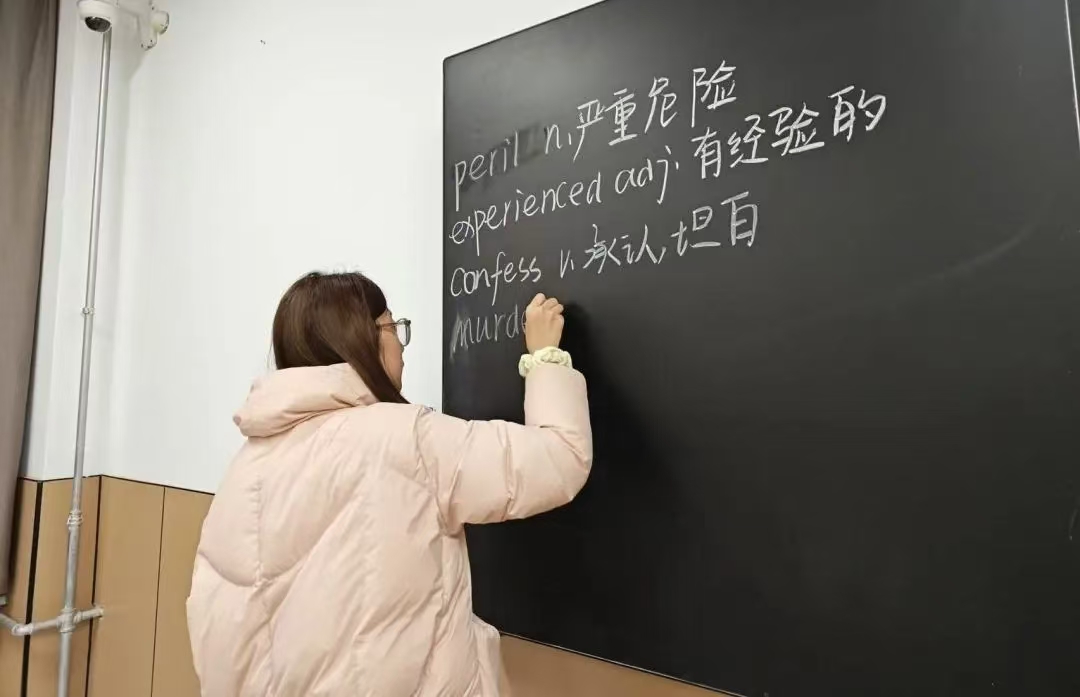 peril n.严重危险
experienced adj.有经验的
confess v.承认,坦白
murde